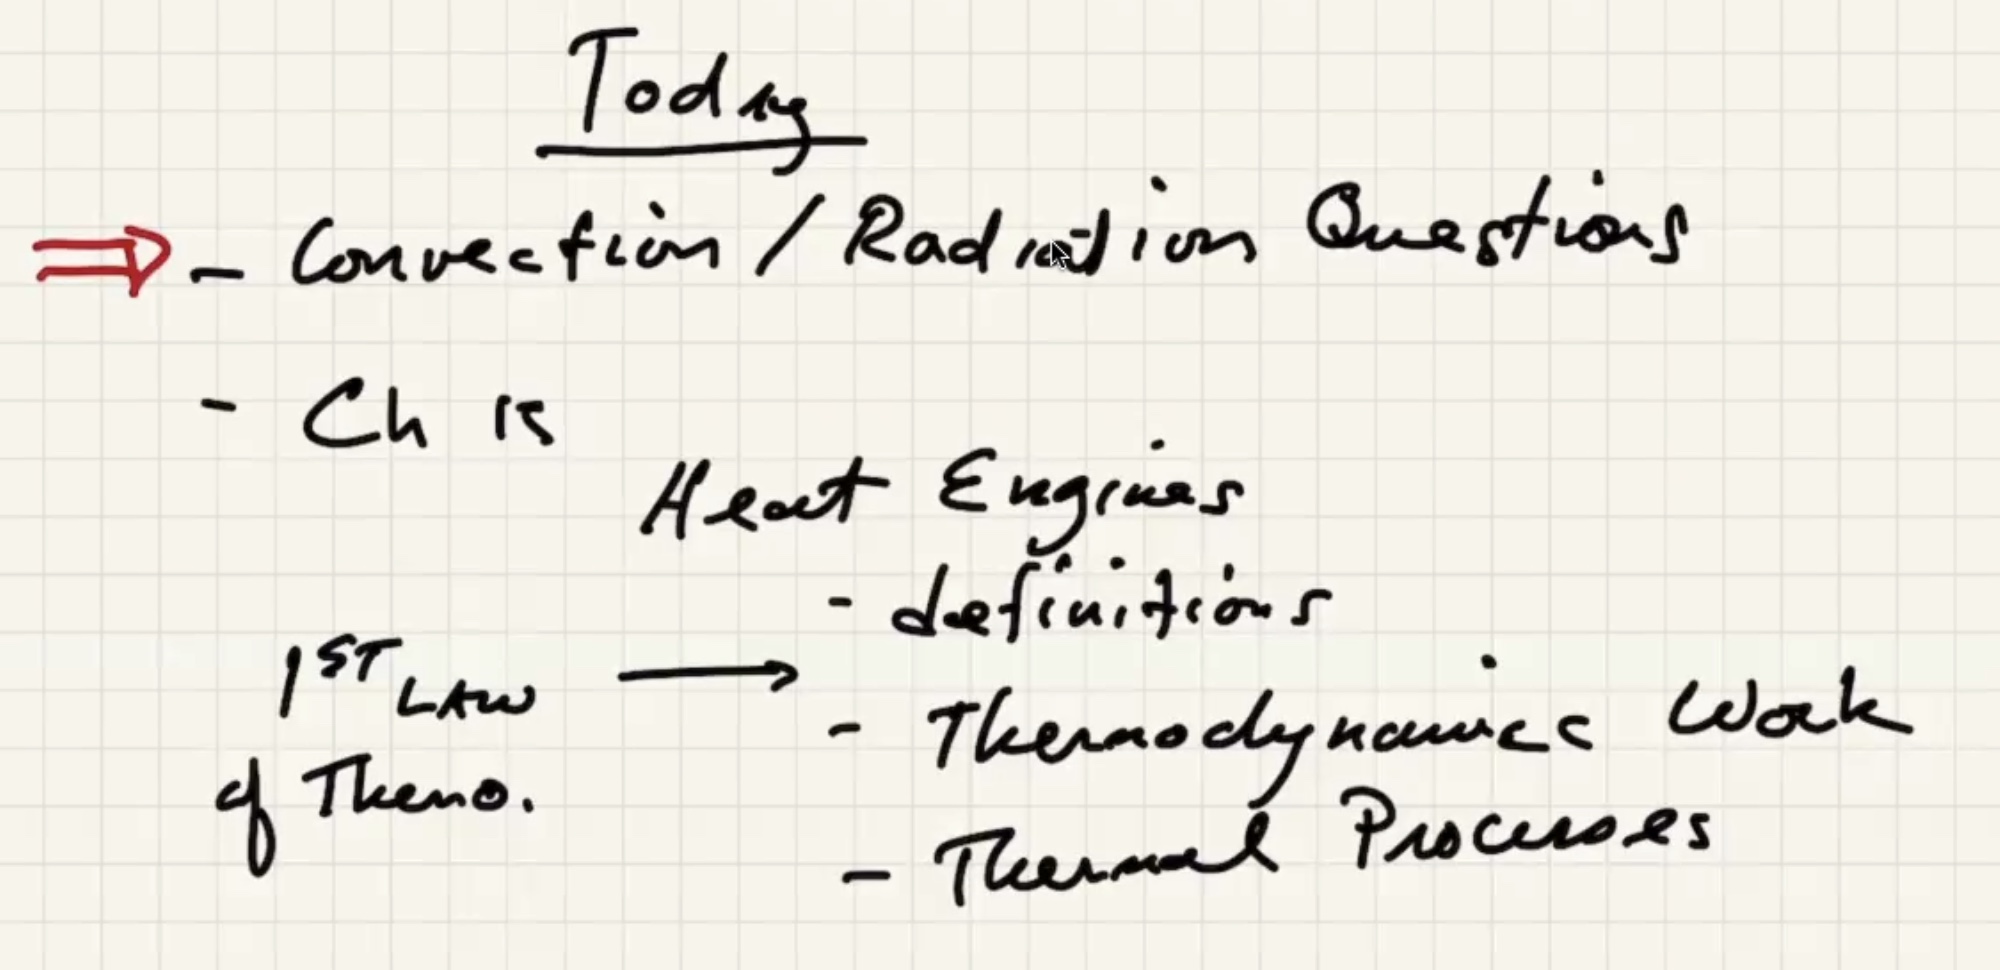 Today
⇒ - Convection / Radiation Questions
- Ch 15
Heat Engines
- definitions
1ST LAW →
- Thermodynamics Work
of Thermo.
- Thermal Processes